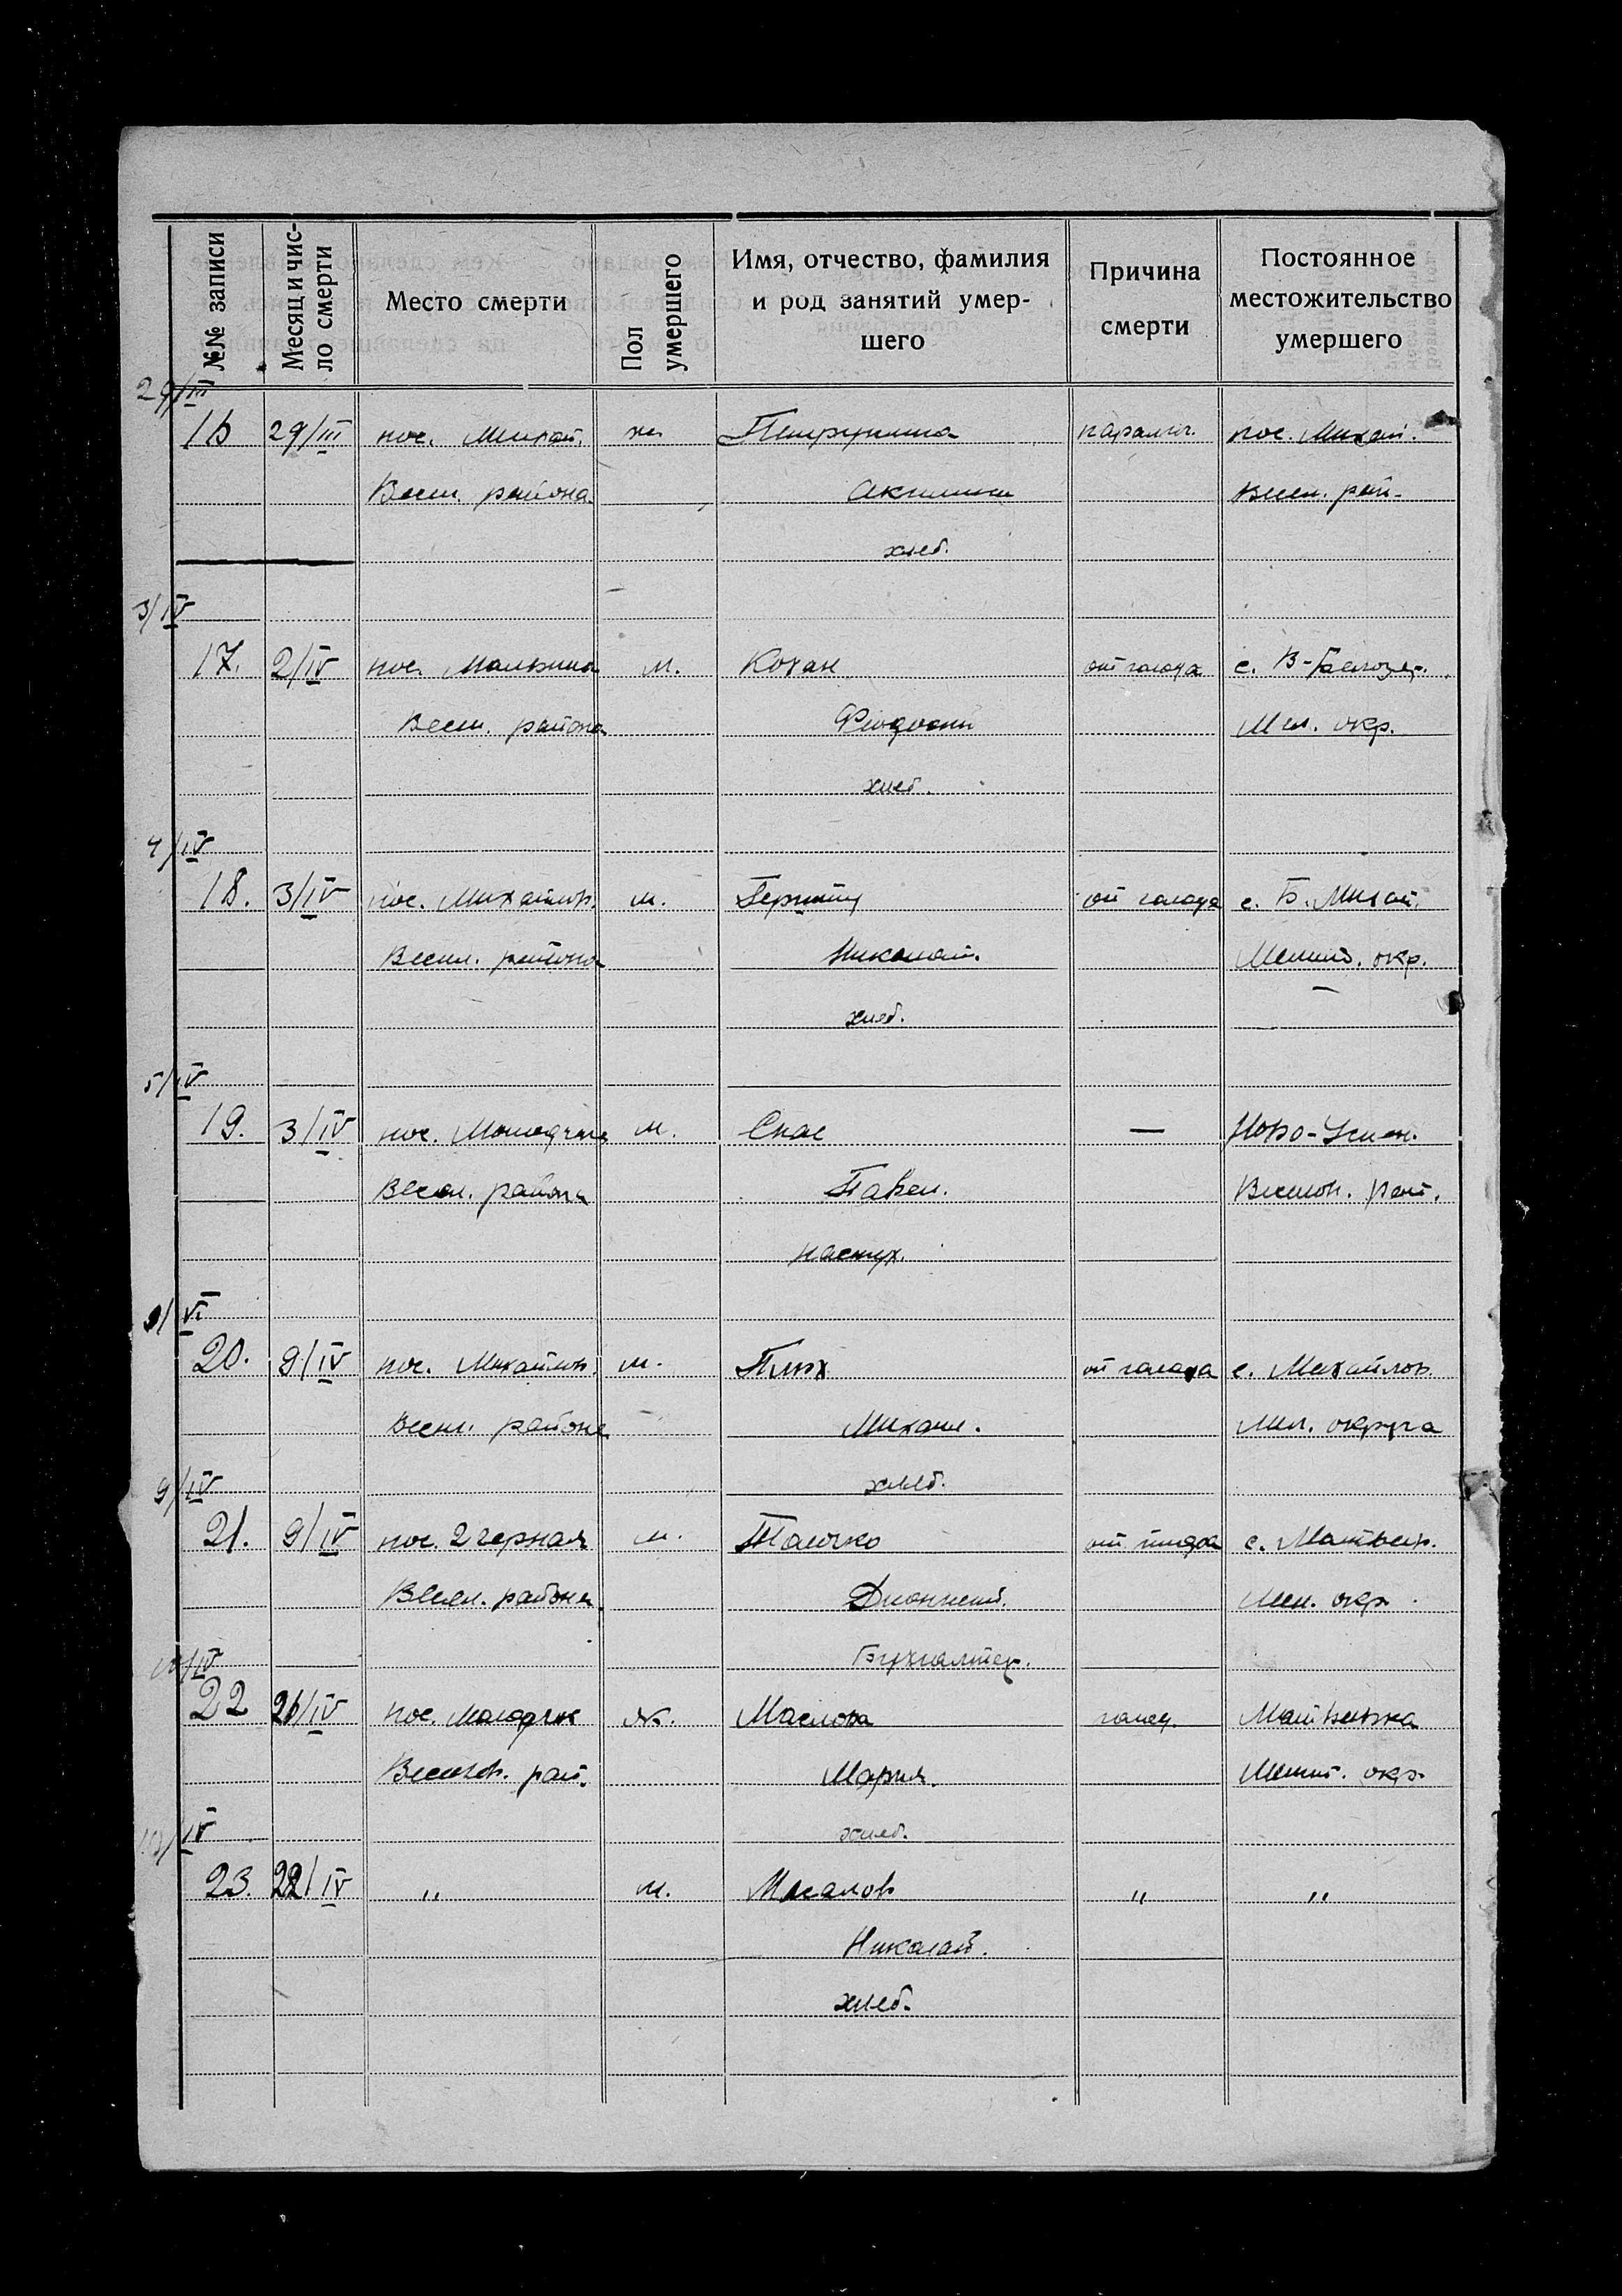 №№ записи
Месяц и чис-
ло смерти
Место смерти
Пол
умершего
Имя, отчество, фамилия
и род занятий умер-
шего
Причина
смерти
Постоянное
местожительство
умершего
29/III
16 29/III пос. Михай. ж. паралич. пос. Михай.
Весел. района Весел. рай.
хлеб.
3/IV
17. 2/IV пос. м. Кохан от голода с. В-Белозер.
Весел. района Мел. окр.
хлеб.
4/IV
18. 3/IV пос. Михайлов. м. от голода с. Б. Михай.
Весел. района Николай. Мелит. окр.
хлеб.
5/IV
19. 3/IV пос. м. Спас — Ново-Успен.
Весел. района Павел. Веселов. рай.
пастух.
VI
20. 9/IV пос. Михайлов. м. Плюх от голода с. Михайлов.
Весел. района Михаил. Мел. округа
хлеб.
9/IV
21. 9/IV пос. 2 черная м. от с. Матвеев.
Весел. района Дионисий. Мел. окр.
Бухгалтер.
10/IV
22 21/IV пос. ж. Маслова голод. Матвеевка
Веселов. рай. Мария. Мелит. окр.
хлеб.
IV
23. 22/IV " м. " "
Николай.
хлеб.